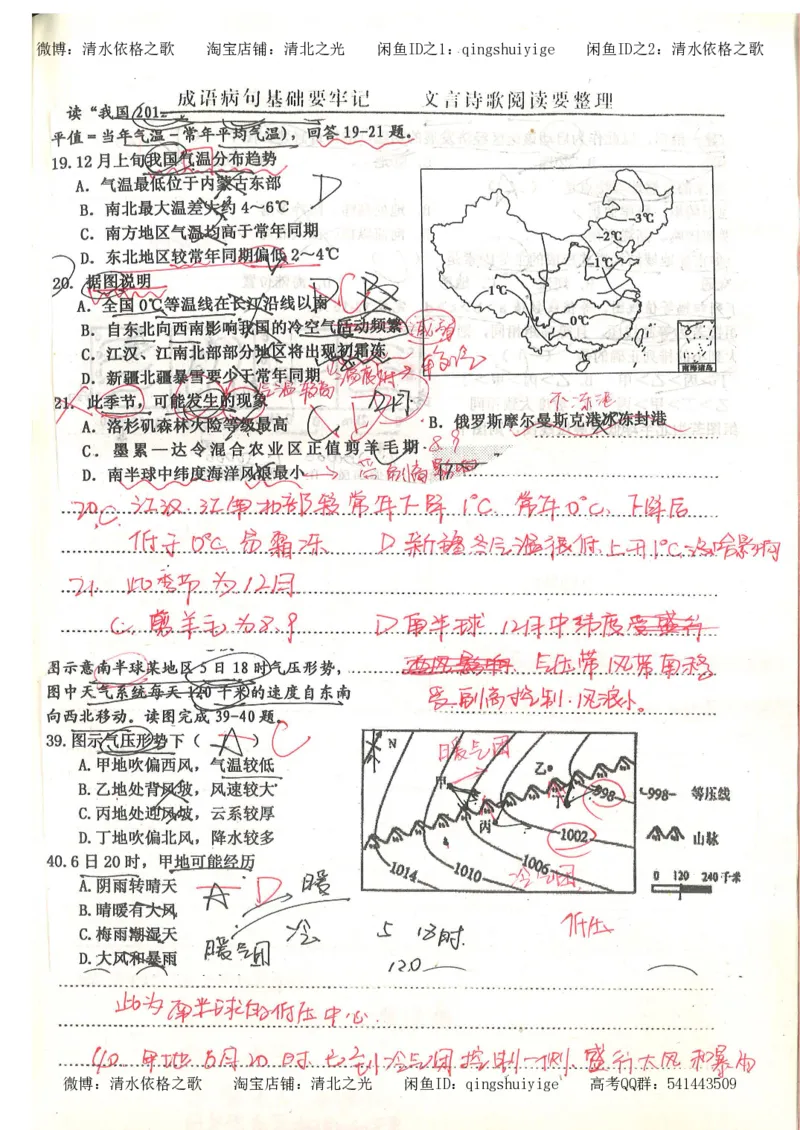 微博：清水依格之歌 淘宝店铺：清北之光 闲鱼ID之1：qingshuiyige 闲鱼ID之2：清水依格之歌
成语病句基础要牢记 文言诗歌阅读要整理
读“我国201
平值＝当年气温－常年平均气温），回答19-21题。
19.12月上旬我国气温分布趋势
A．气温最低位于内蒙古东部
B．南北最大温差大约4~6℃
C．南方地区气温均高于常年同期
D．东北地区较常年同期偏低2~4℃
D
20．据图说明
A．全国0℃等温线在长江沿线以南
B．自东北向西南影响我国的冷空气活动频繁
C．江汉、江南北部部分地区将出现初霜冻
D．新疆北疆暴雪要少于常年同期
C
-3℃
-2℃
-1℃
1℃
0℃
南海诸岛
21．此季节，可能发生的现象
A．洛杉矶森林火险等级最高
B．俄罗斯摩尔曼斯克港冰冻封港
C．墨累—达令混合农业区正值剪羊毛期
D．南半球中纬度海洋风浪最小
不冻港
8 9
20. 江汉、江南北部较常年下降1℃ 常年0℃、下降后
C.
低于0℃ 易霜冻 D 新疆冬气温很低
21. 此季节为12月
C. 剪羊毛为8.9 D 南半球12月中纬度受盛行
西风影响 气压带风带南移
受副高控制．风浪小.
图示意南半球某地区5日18时气压形势，
图中天气系统每天120千米的速度自东南
向西北移动。读图完成39-40题。
39.图示气压形势下（ ）
A C
A.甲地吹偏西风，气温较低
B.乙地处背风坡，风速较大
C.丙地处迎风坡，云系较厚
D.丁地吹偏北风，降水较多
N
暖气团
甲
乙
丙
丁
998
1002
1006
1010
1014
冷气团
-998- 等压线
山脉
0 120 240千米
40.6日20时，甲地可能经历
A.阴雨转晴天
B.晴暖有大风
C.梅雨潮湿天
D.大风和暴雨
A D
暖
冷
暖气团
5 18时.
120
低压
此为南半球的低压中心.
40 甲地6月20时 冷气团控制一侧. 盛行大风和暴雨
微博：清水依格之歌 淘宝店铺：清北之光 闲鱼ID：qingshuiyige 高考QQ群：541443509